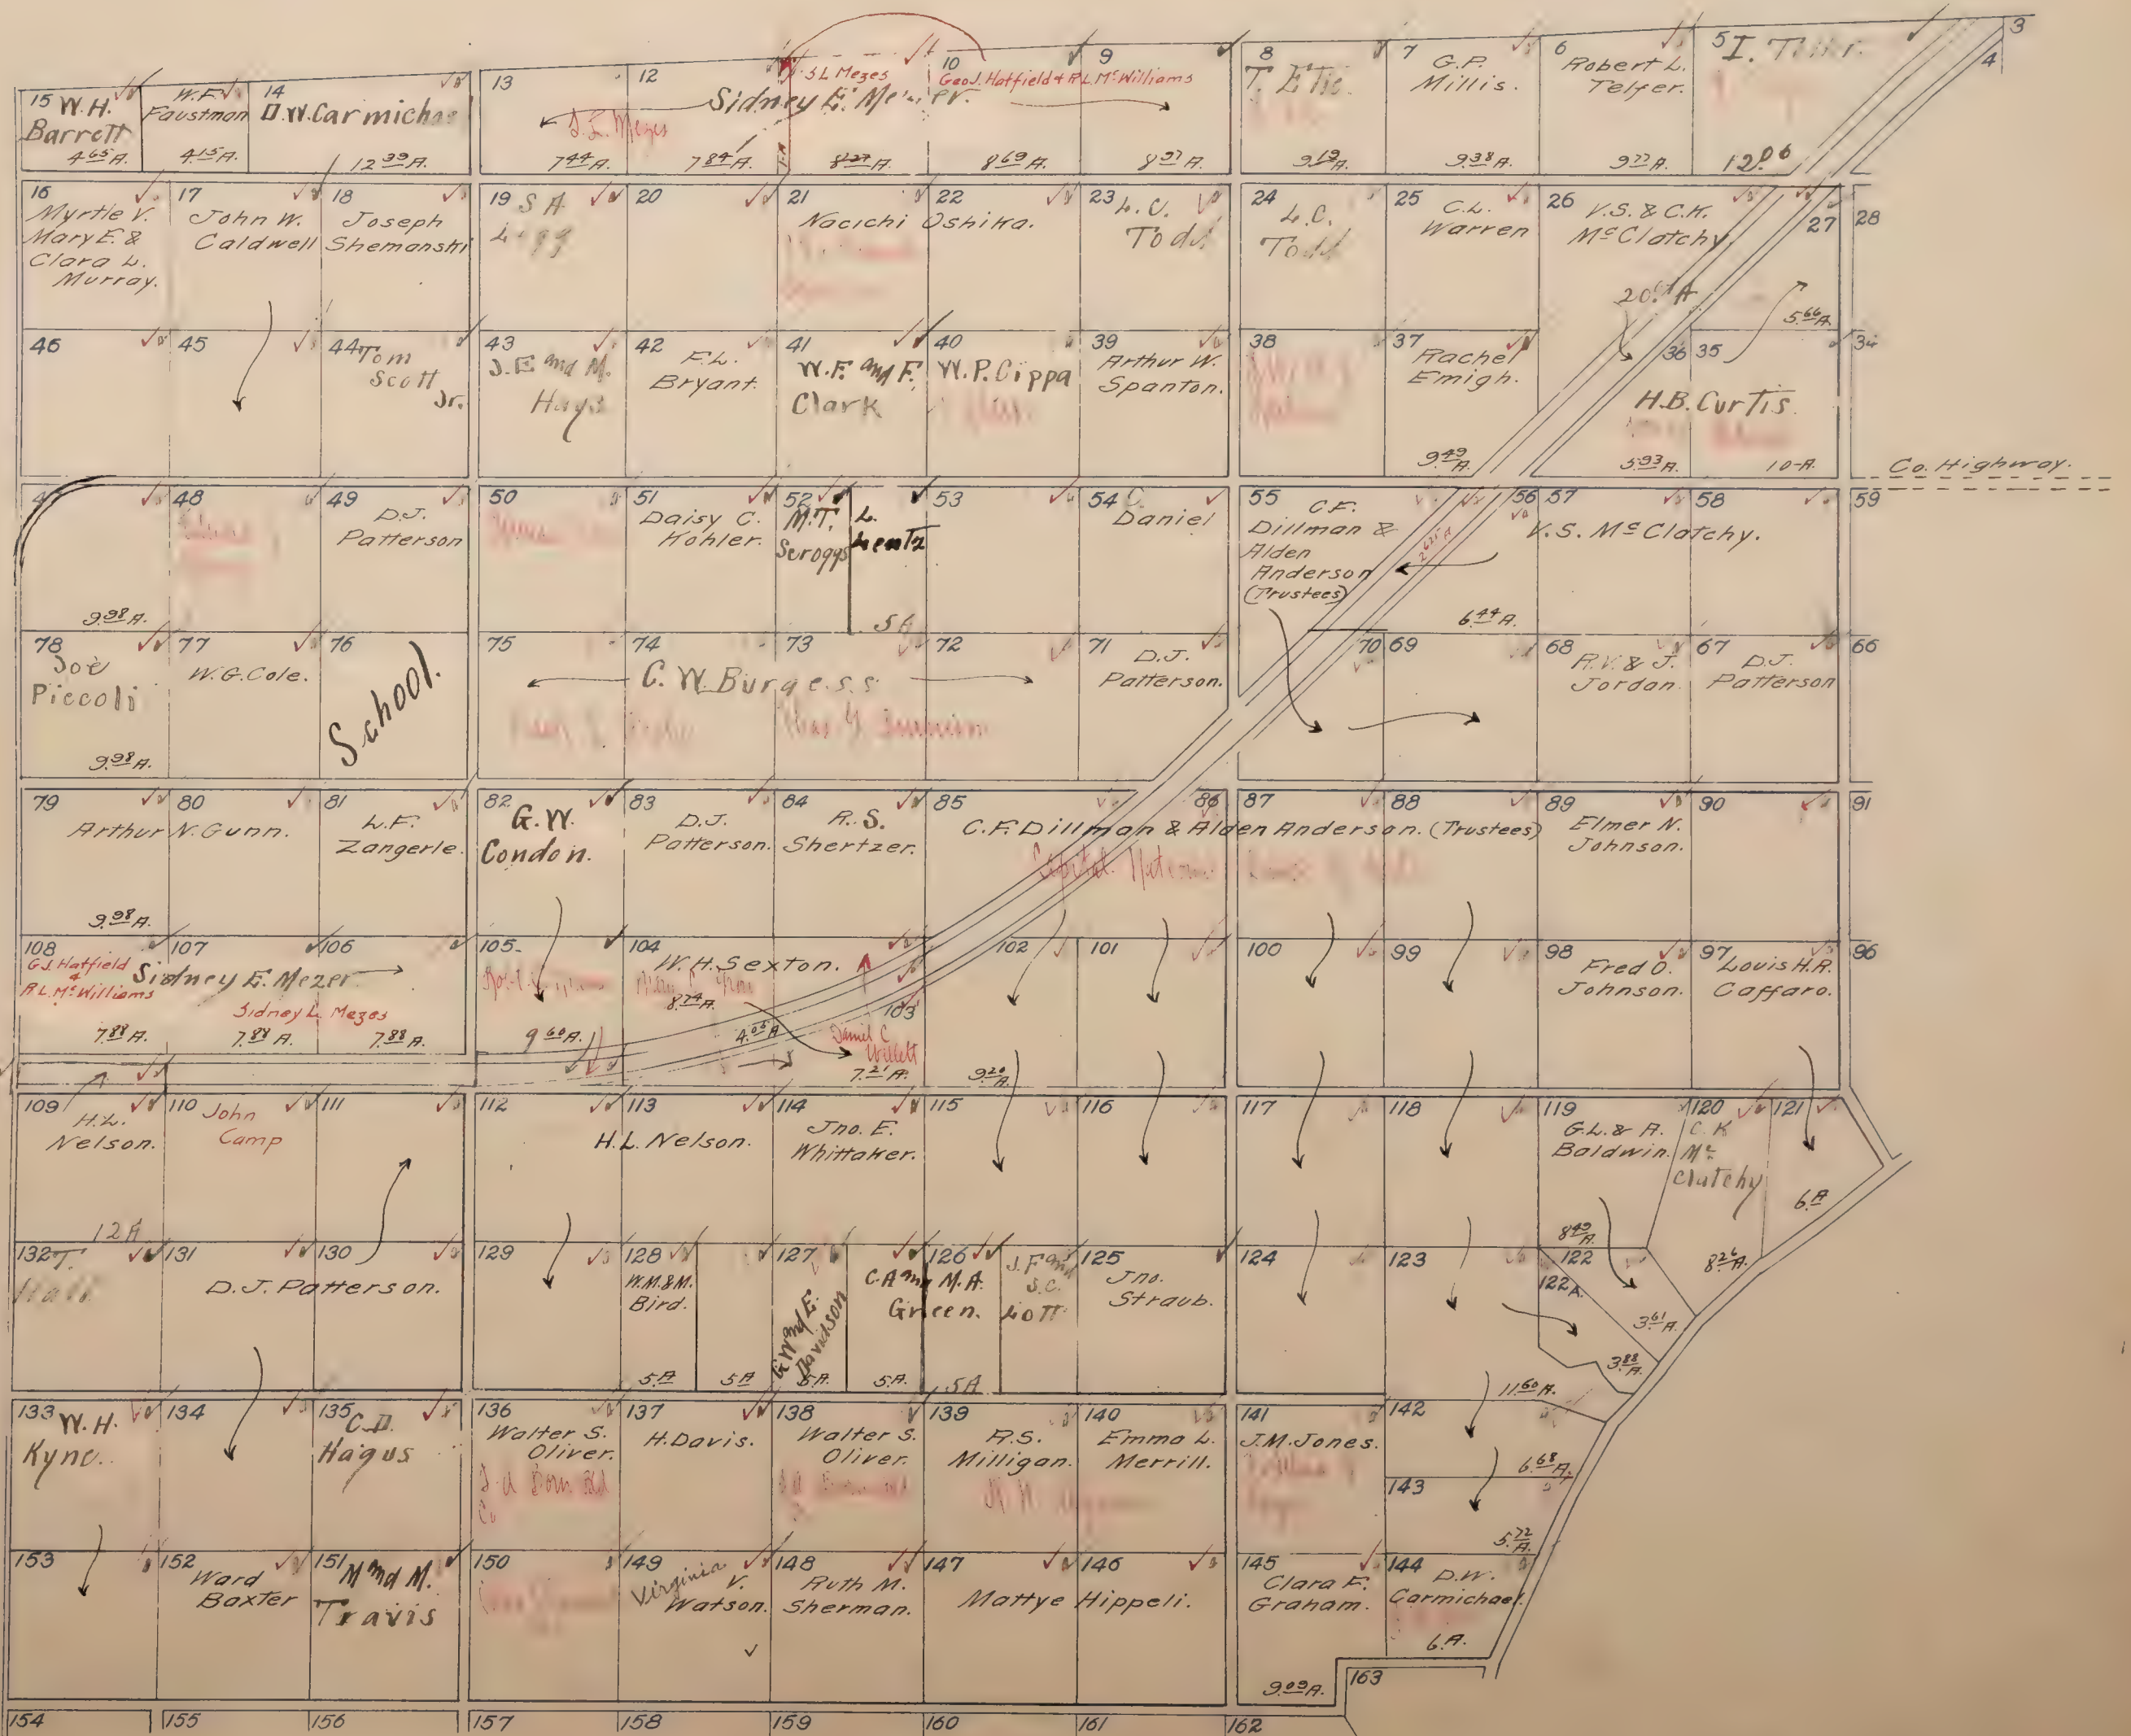 3
4
5 I.
12.06
6
Robert L.
Telfer.
9.77 A.
7
G.P.
Millis.
9.38 A.
8
T.
9.19 A.
9
8.97 A.
10
Geo J. Hatfield & R L McWilliams
8.69 A.
S L Mezes
Sidney E.
8.27 A.
12
7.84 A.
13
S. L. Mezes
7.44 A.
14
D.W. Carmichae
12.99 A.
W.F.
Faustman
4.15 A.
15 W.H.
Barrett
4.65 A.
16
Myrtle V.
Mary E. &
Clara L.
Murray.
17
John W.
Caldwell
18
Joseph
Shemanski
19 S A
20
21
Nacichi Oshika.
22
23 L.C.
Todd
24
L.C.
Todd
25
C.L.
Warren
26
V.S. & C.K.
McClatchy
27
28
5.66 A.
46
45
44 Tom
Scott
Jr.
43
J.E and M.
Hays
42
F.L.
Bryant.
41
W.F. and F.
Clark
40
W.P. Cippa
39
Arthur W.
Spanton.
38
37
Rachel
Emigh.
9.49 A.
36
35
34
H.B. Curtis.
5.93 A.
10-A.
Co. Highway.
9.98 A.
48
49
D.J.
Patterson
50
51
Daisy C.
Kohler.
52
M.T.
Scroggs
L.
Lentz
5A
53
54 C.
Daniel
55
C.F.
Dillman &
Alden
Anderson
(Trustees)
56
57
V.S. McClatchy.
6.44 A.
58
59
78
Joe
Piccoli
9.98 A.
77
W.G. Cole.
76
School.
75
74
C. W Burgess
73
72
71
D.J.
Patterson.
70
69
68
R.V. & J.
Jordan.
67
D.J.
Patterson
66
79
Arthur N. Gunn.
9.98 A.
80
81
L.F.
Zangerle.
82
G.W.
Condon.
83
D.J.
Patterson.
84
R.S.
Shertzer.
85
86
87
88
C.F. Dillman & Alden Anderson. (Trustees)
Capital
89
Elmer N.
Johnson.
90
91
108
G J. Hatfield
&
R L. McWilliams
7.88 A.
107
Sidney E. Mezer
Sidney L. Mezes
7.88 A.
106
7.88 A.
105
9.60 A.
104
W.H. Sexton.
8.74 A.
4.05 A
103
Daniel C
Willett
7.21 A.
102
9.20 A.
101
100
99
98
Fred O.
Johnson.
97
Louis H.R.
Caffaro.
96
109
H.L.
Nelson.
12 A
110
John
Camp
111
112
113
H.L. Nelson.
114
Jno. E.
Whittaker.
115
116
117
118
119
G.L. & A.
Baldwin.
8.49 A.
120
C.K
Mc
Clatchy
8.26 A.
121
6. A
132 T.
Hall
131
D.J. Patterson.
130
129
128
W.M. & M.
Bird.
5. A
5 A
127
G W and E.
Davidson
5. A.
5. A.
126
C.A and M.A.
Green.
5 A
J.F and
S.C.
Lott
125
Jno.
Straub.
124
123
11.60 A.
122
3.61 A.
122 A.
3.88 A.
133
W.H.
Kync.
134
135
C.D.
Hagus
136
Walter S.
Oliver.
137
H. Davis.
138
Walter S.
Oliver.
139
R.S.
Milligan.
140
Emma L.
Merrill.
141
J.M. Jones.
142
6.68 A.
143
5.72 A.
153
152
Ward
Baxter
151
M and M.
Travis
150
149
Virginia V.
Watson.
148
Ruth M.
Sherman.
147
Mattye Hippeli.
146
145
Clara F.
Graham.
9.09 A.
144
D.W.
Carmichael.
6. A.
163
154
155
156
157
158
159
160
161
162